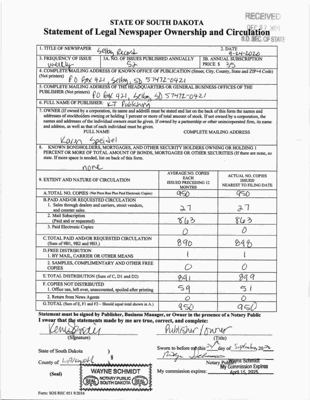 RECEIVED
STATE OF SOUTH DAKOTA
S.D. SEC. OF STATE
Statement of Legal Newspaper Ownership and Circulation
1. TITLE OF NEWSPAPER Selby Record
2. DATE
9-24-2020
3. FREQUENCY OF ISSUE
weekly
3A. NO. OF ISSUES PUBLISHED ANNUALLY
52
3B. ANNUAL SUBSCRIPTION
PRICE $ 35
4. COMPLETE MAILING ADDRESS OF KNOWN OFFICE OF PUBLICATION (Street, City, County, State and ZIP+4 Code)
(Not printers) PO Box 421, Selby, SD 57472-0421
5. COMPLETE MAILING ADDRESS OF THE HEADQUARTERS OR GENERAL BUSINESS OFFICES OF THE
PUBLISHER (Not printers) PO Box 421, Selby, SD 57472-0421
6. FULL NAME OF PUBLISHER: KJ Publishing
7. OWNER (If owned by a corporation, its name and address must be stated and list on the back of this form the names and
addresses of stockholders owning or holding 1 percent or more of total amount of stock. If not owned by a corporation, the
names and addresses of the individual owners must be given. If owned by a partnership or other unincorporated firm, its name
and address, as well as that of each individual must be given.
FULL NAME COMPLETE MAILING ADDRESS
8. KNOWN BONDHOLDERS, MORTGAGES, AND OTHER SECURITY HOLDERS OWNING OR HOLDING 1
PERCENT OR MORE OF TOTAL AMOUNT OF BONDS, MORTGAGES OR OTHER SECURITIES (If there are none, so
state. If more space is needed, list on back of this form.
none
9. EXTENT AND NATURE OF CIRCULATION
AVERAGE NO. COPIES
EACH
ISSUED PRECEDING 12
MONTHS
ACTUAL NO. COPIES
ISSUED
NEAREST TO FILING DATE
A. TOTAL NO. COPIES (Net Press Run Plus Paid Electronic Copies) 950 950
B. PAID AND/OR REQUESTED CIRCULATION
1. Sales through dealers and carriers, street vendors,
and counter sales. 27 27
2. Mail Subscription
(Paid and or requested) 863 863
3. Paid Electronic Copies 0 0
C. TOTAL PAID AND/OR REQUESTED CIRCULATION
(Sum of 9B1, 9B2 and 9B3.) 890
D. FREE DISTRIBUTION
1. BY MAIL, CARRIER OR OTHER MEANS
2. SAMPLES, COMPLIMENTARY AND OTHER FREE
COPIES 0 0
E. TOTAL DISTRIBUTION (Sum of C, D1 and D2) 891 899
F. COPIES NOT DISTRIBUTED
1. Office use, left over, unaccounted, spoiled after printing 59 51
2. Return from News Agents 0 0
G. TOTAL (Sum of E, F1 and F2 - Should equal total shown in A.) 950 950
Statement must be signed by Publisher, Business Manager, or Owner in the presence of a Notary Public
I swear that the statements made by me are true, correct, and complete:
Publisher/owner
(Signature) (Title)
State of South Dakota )
County of Walworth )
Sworn to before me this day of September, 2020
(Seal)
WAYNE SCHMIDT
NOTARY PUBLIC
SOUTH DAKOTA
Notary Public Wayne Schmidt
My Commission Expires
My commission expires: April 16, 2025
Form: SOS REC 051 9/2016